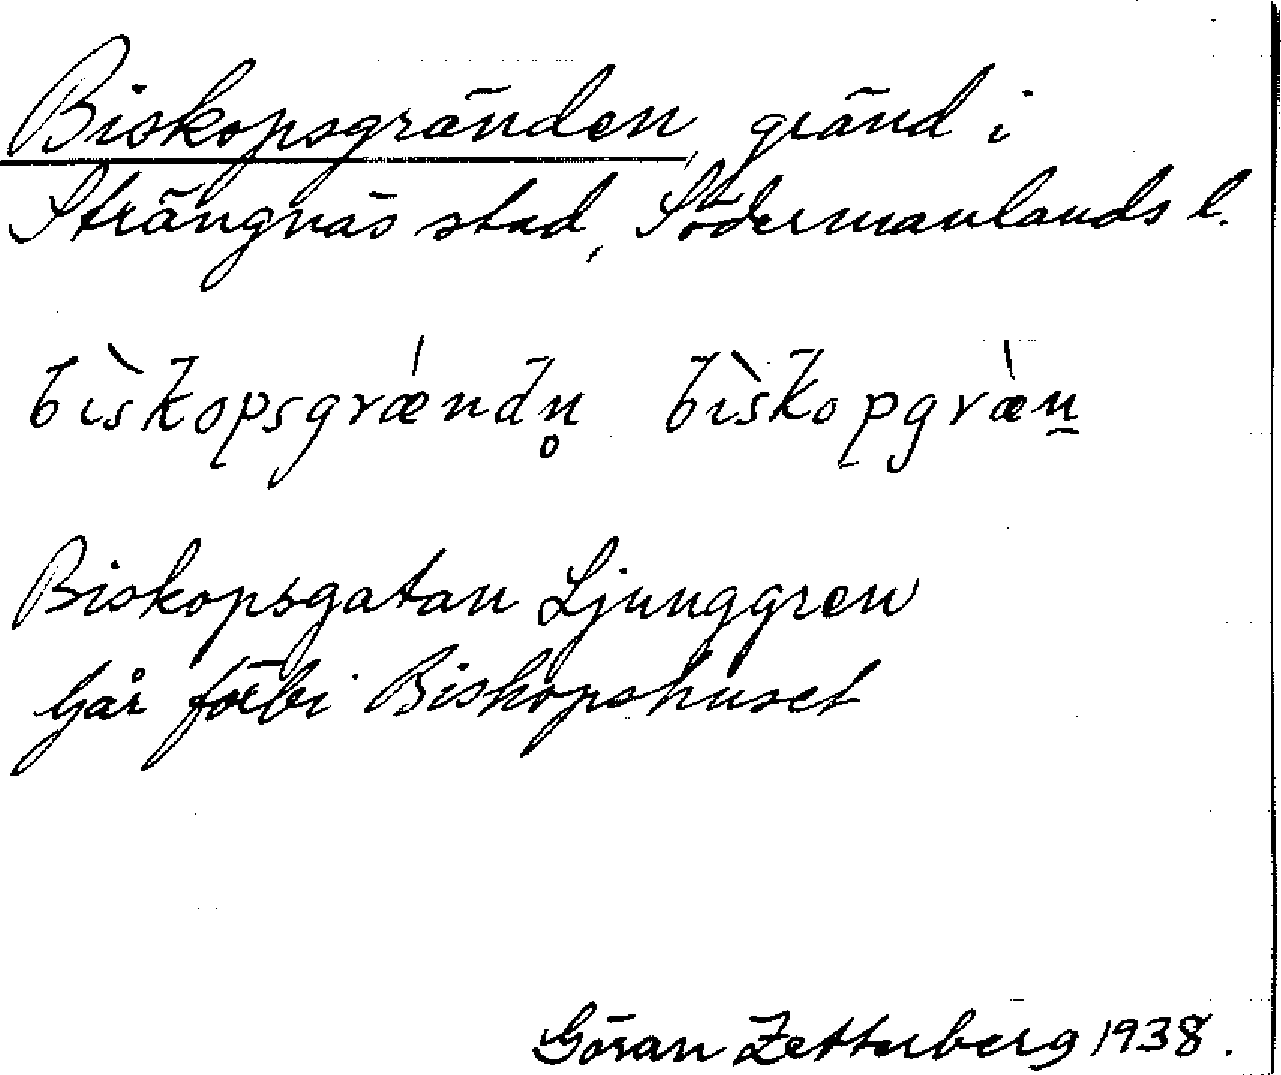 Biskopsgränden, gränd i
Strängnäs stad, Södermanlands l.
bìskopsgrændn̥ bìskopgræ̀n̠
Biskopsgatan Ljunggren
Går förbi Biskopshuset
Göran Zetterberg 1938.